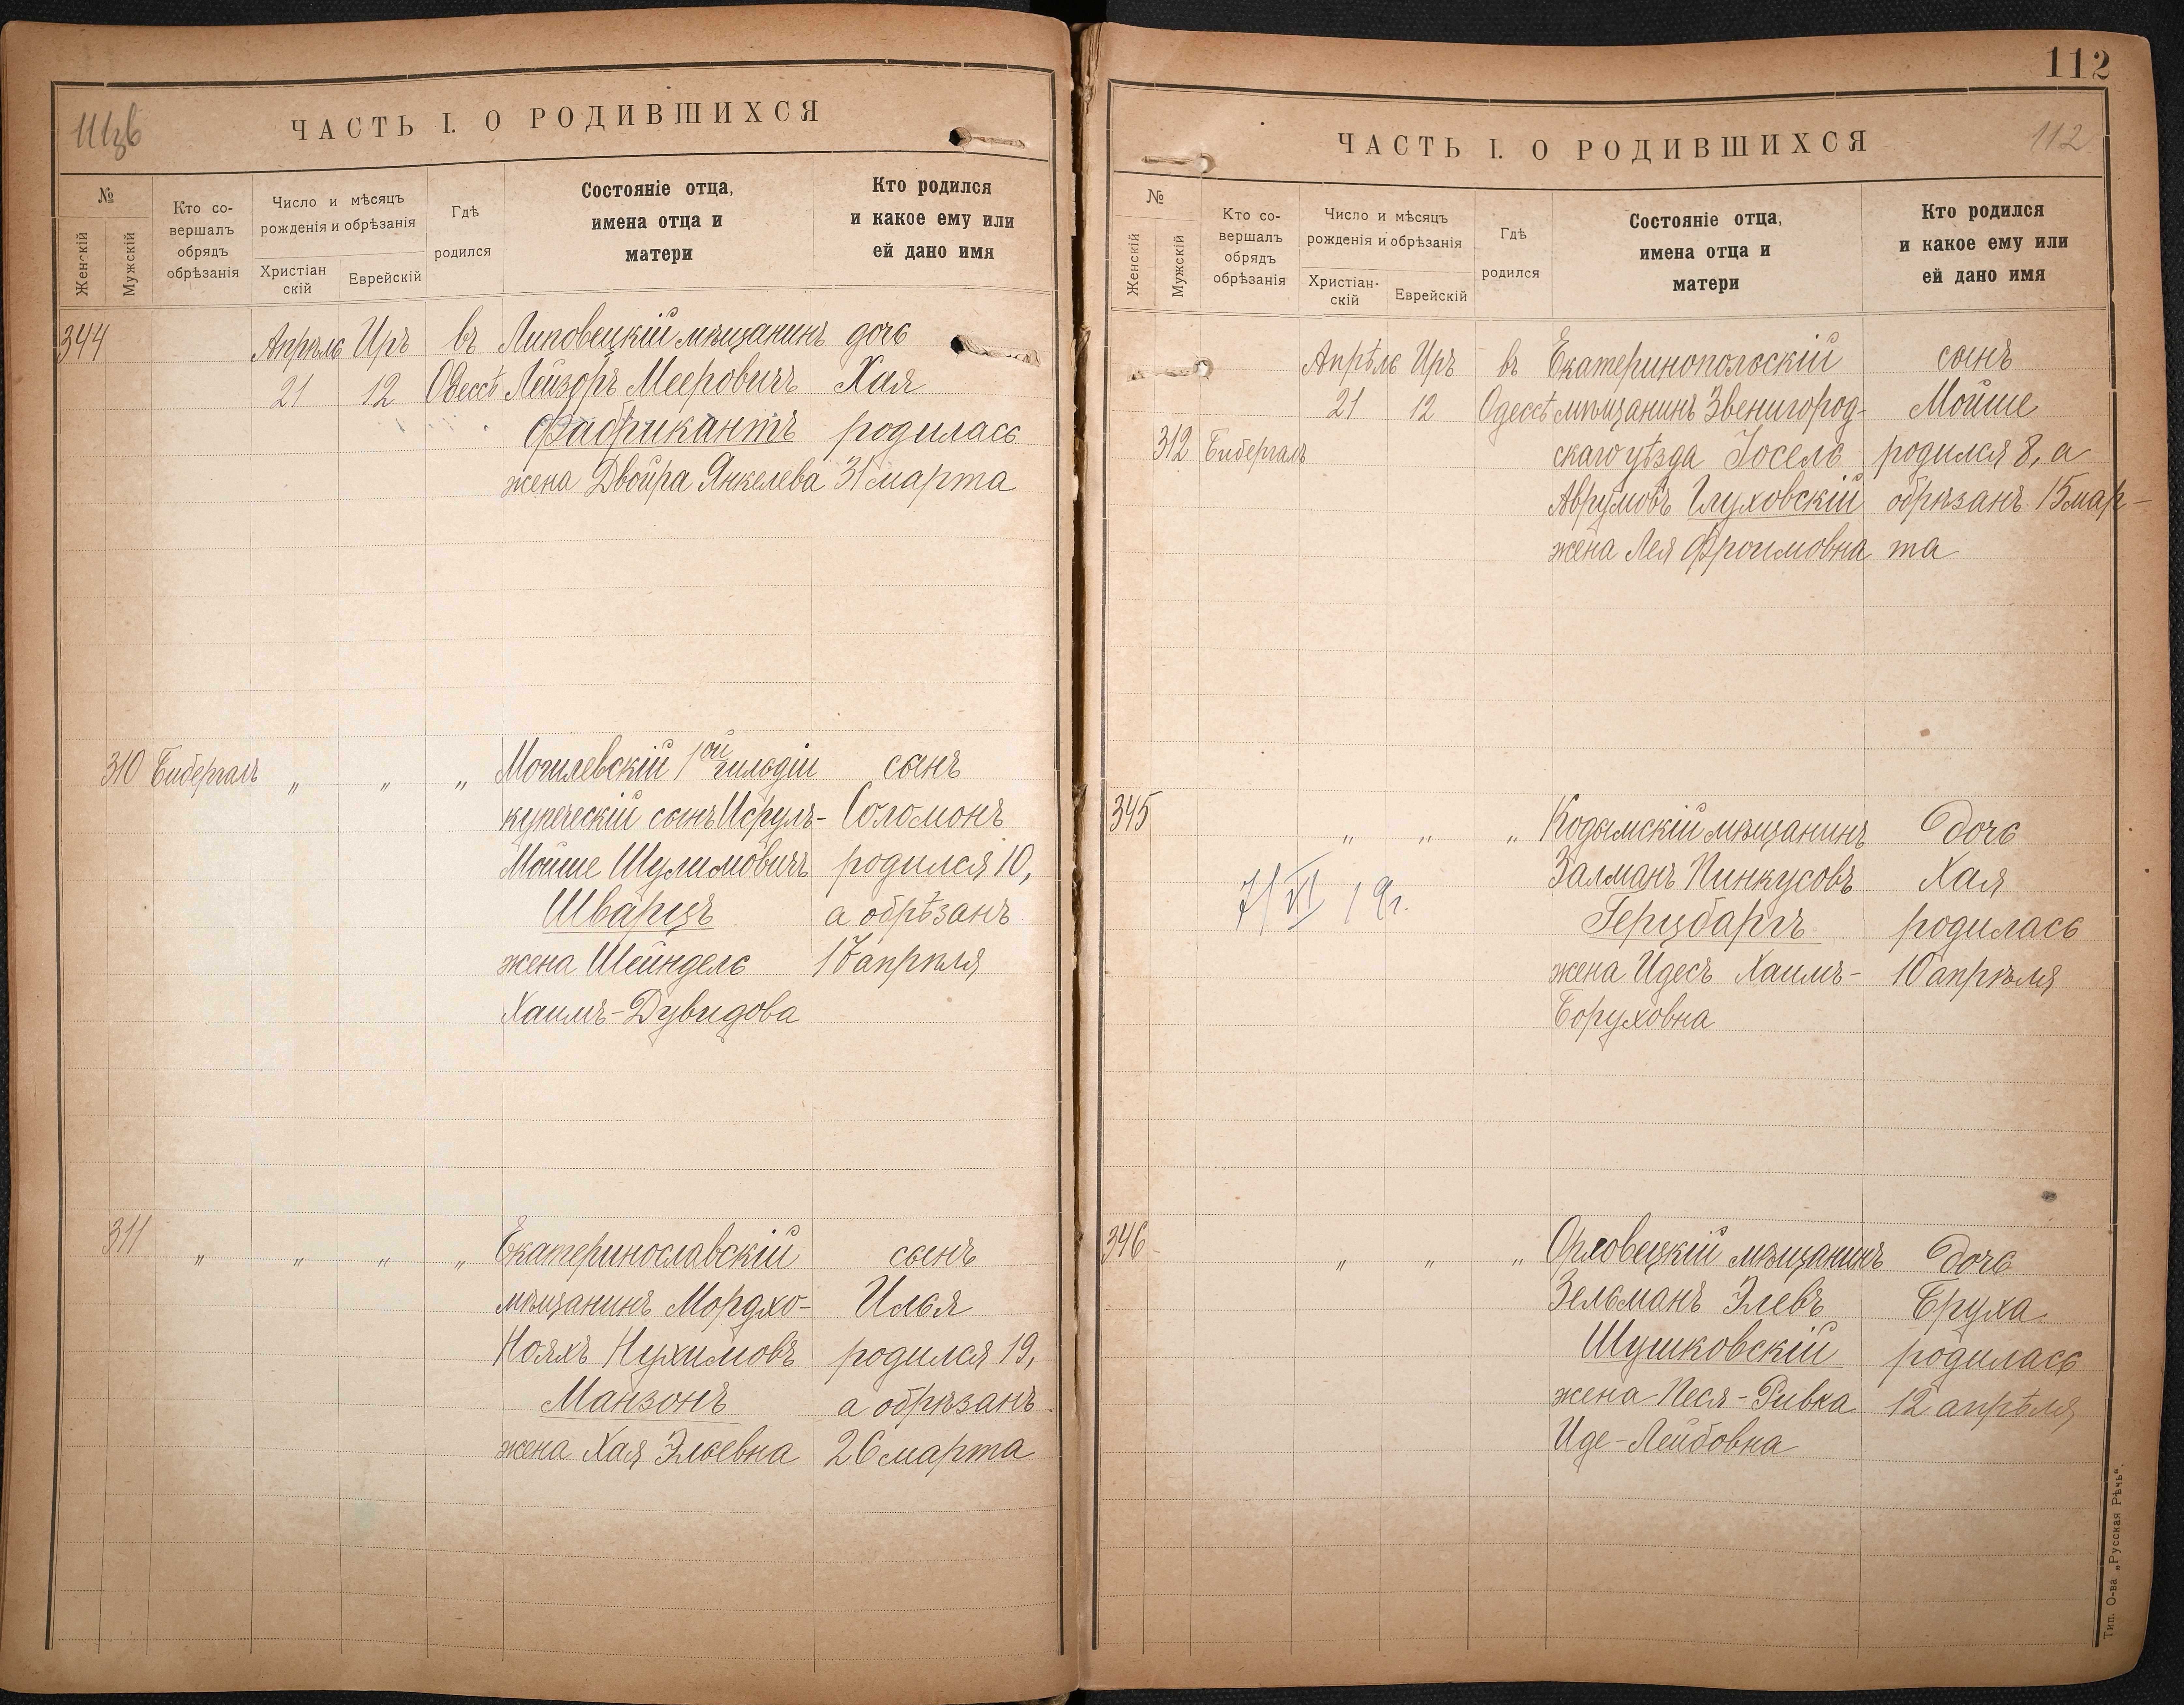 ЧАСТЬ I. О РОДИВШИХСЯ
№
Женскій
Мужскій
Кто со-
вершалъ
обрядъ
обрѣзанія
Число и мѣсяцъ
рожденія и обрѣзанія
Христіан
скій
Еврейскій
Гдѣ
родился
Состояніе отца,
имена отца и
матери
Кто родился
и какое ему или
ей дано имя
344 Апрѣль Иръ въ Липовецкій мѣщанинъ дочь
21 12 Одессѣ Лейзоръ Мееровичъ Хая
Фабрикантъ родилась
жена Двойра Янкелева 31 марта
310 Бибергалъ " " " Могилевскій 1ой гильдіи сынъ
купеческій сынъ Исруль- Соломонъ
Мойше Шулимовичъ родился 10,
Шварцъ а обрѣзанъ
жена Шейндель 17 апрѣля
Хаимъ-Дувидова
311 " " " " Екатеринославскій сынъ
мѣщанинъ Мордхо- Илья
Нояхъ Нухимовъ родился 19,
Манзонъ а обрѣзанъ
жена Хая Эльевна 26 марта
112
ЧАСТЬ I. О РОДИВШИХСЯ
112
№
Женскій
Мужскій
Кто со-
вершалъ
обрядъ
обрѣзанія
Число и мѣсяцъ
рожденія и обрѣзанія
Христіан-
скій
Еврейскій
Гдѣ
родился
Состояніе отца,
имена отца и
матери
Кто родился
и какое ему или
ей дано имя
Апрѣль Иръ въ Екатеринопольскій сынъ
21 12 Одессѣ мѣщанинъ Звенигород- Мойше
312 Бибергалъ скаго уѣзда Іосель родился 8, а
Аврумовъ Глуховскій обрѣзанъ 15 мар-
жена Лея Фроимовна та
345 " " " Кодымскій мѣщанинъ дочь
Залманъ Пинкусовъ Хая
7/VI 19г. Герцбаргъ родилась
жена Идесъ Хаимъ- 10 апрѣля
Боруховна
346 " " " Орловецкій мѣщанинъ дочь
Зельманъ Элевъ Бруха
Шушковскій родилась
жена Песя-Ривка 12 апрѣля
Иде-Лейбовна
Тип. О-ва „Русская Рѣчь".